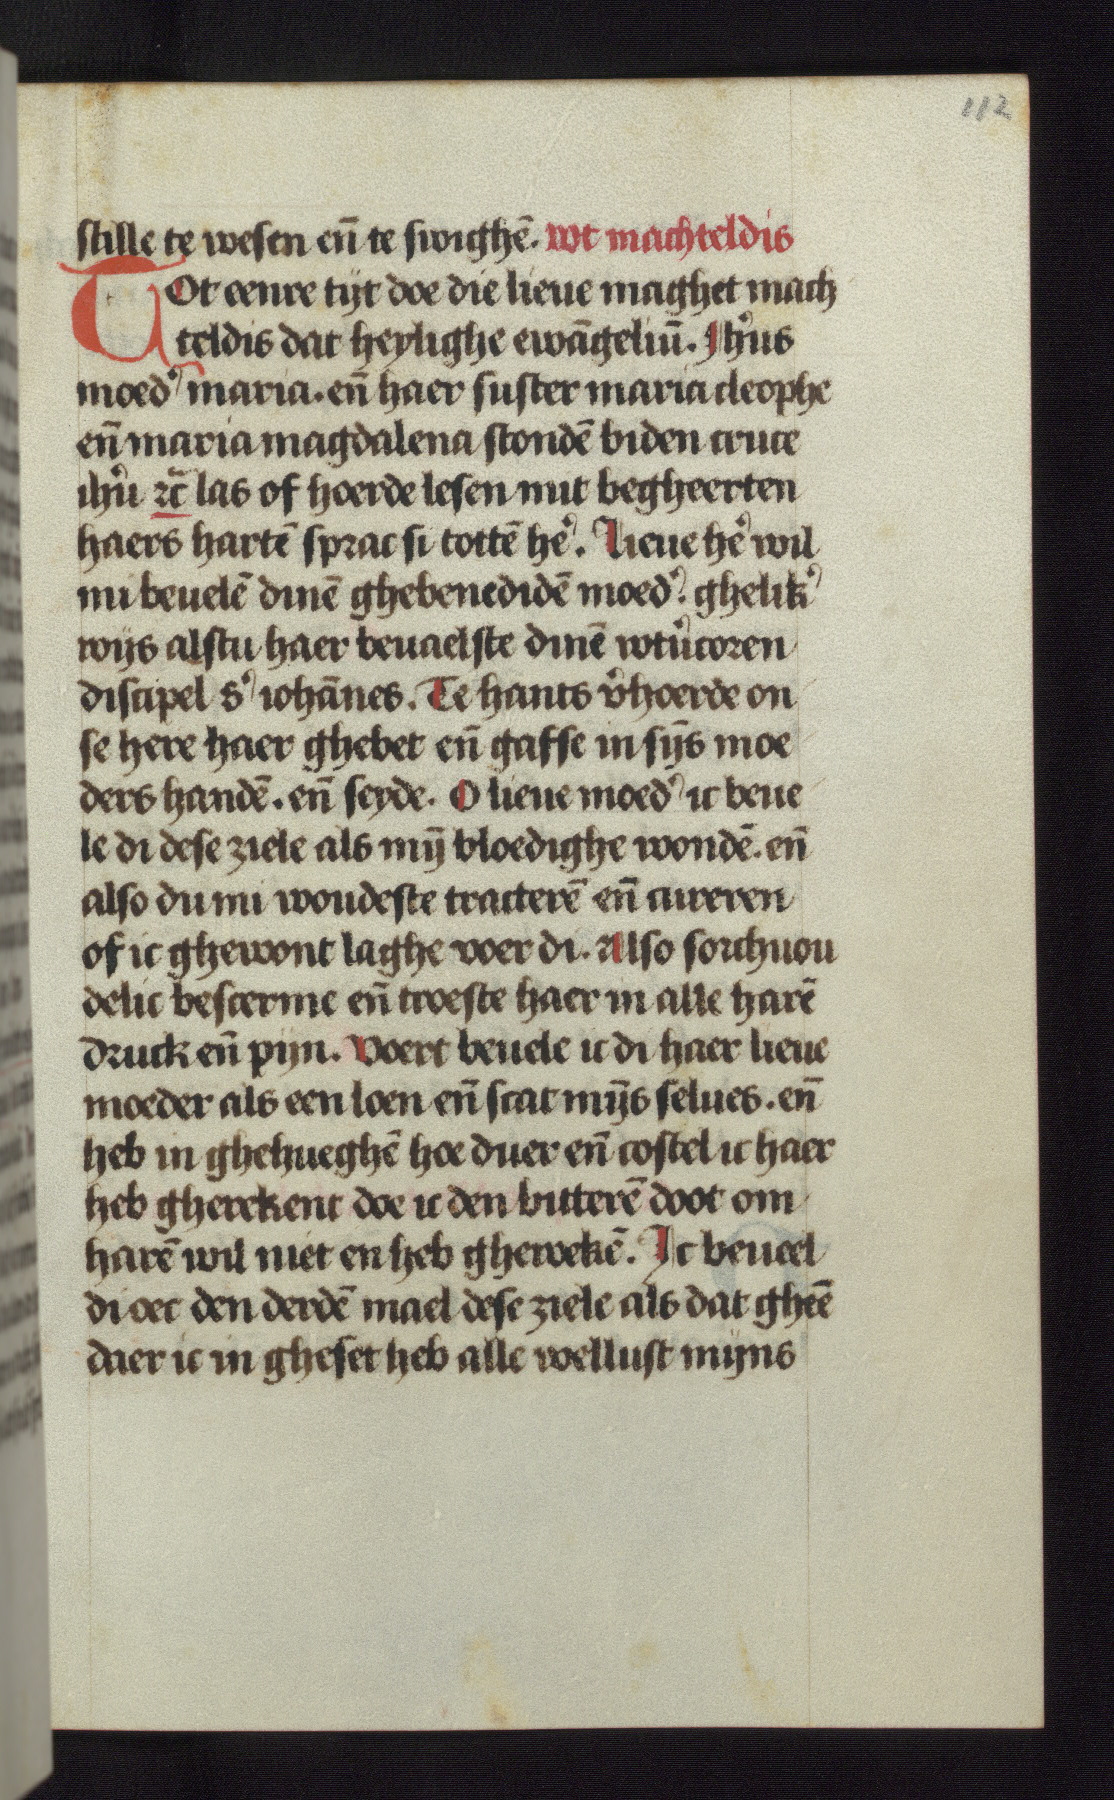 112
stille te wesen en̄ te swighē. wt machteldis
Tot eenre tijt doe die lieue maghet mach
teldis dat heylighe ewāgeliū. Ihūs
moed᾽ maria. en̄ haer suster maria cleophe
en̄ maria magdalena stondē biden cruce
ihū ⁊c̄ las of hoerde lesen mit begheerten
haers hartē sprac si tottē he᾽. Lieue he᾽ wil
mi beuelē dinē ghebenedidē moed᾽. ghelik᾽
wijs alstu haer beuaelste dinē wtu᾽coren
discipel s᾽ iohānes. Te hants v᾽hoerde on
se here haer ghebet en̄ gafse in sijs̄ moe
ders handē. en̄ seyde. O lieue moed᾽ ic beue
le di dese ziele als mij̄ bloedighe wondē. en̄
also du mi woudeste tracterē en̄ cureren
of ic ghewont laghe voer di. Also sorchuou
delic bescerme en̄ troeste haer in alle harē
druck en̄ pijn. Voert beuele ic di haer lieue
moeder als een loen en̄ scat mijs̄ selues. en̄
heb in ghehueghē hoe duer en̄ costel ic haer
heb gherekent doe ic den bitterē doot om
harē wil niet en heb ghewekē. Ic beueel
di oec den derdē mael dese ziele als dat gheē
daer ic in gheset heb alle wellust mijns